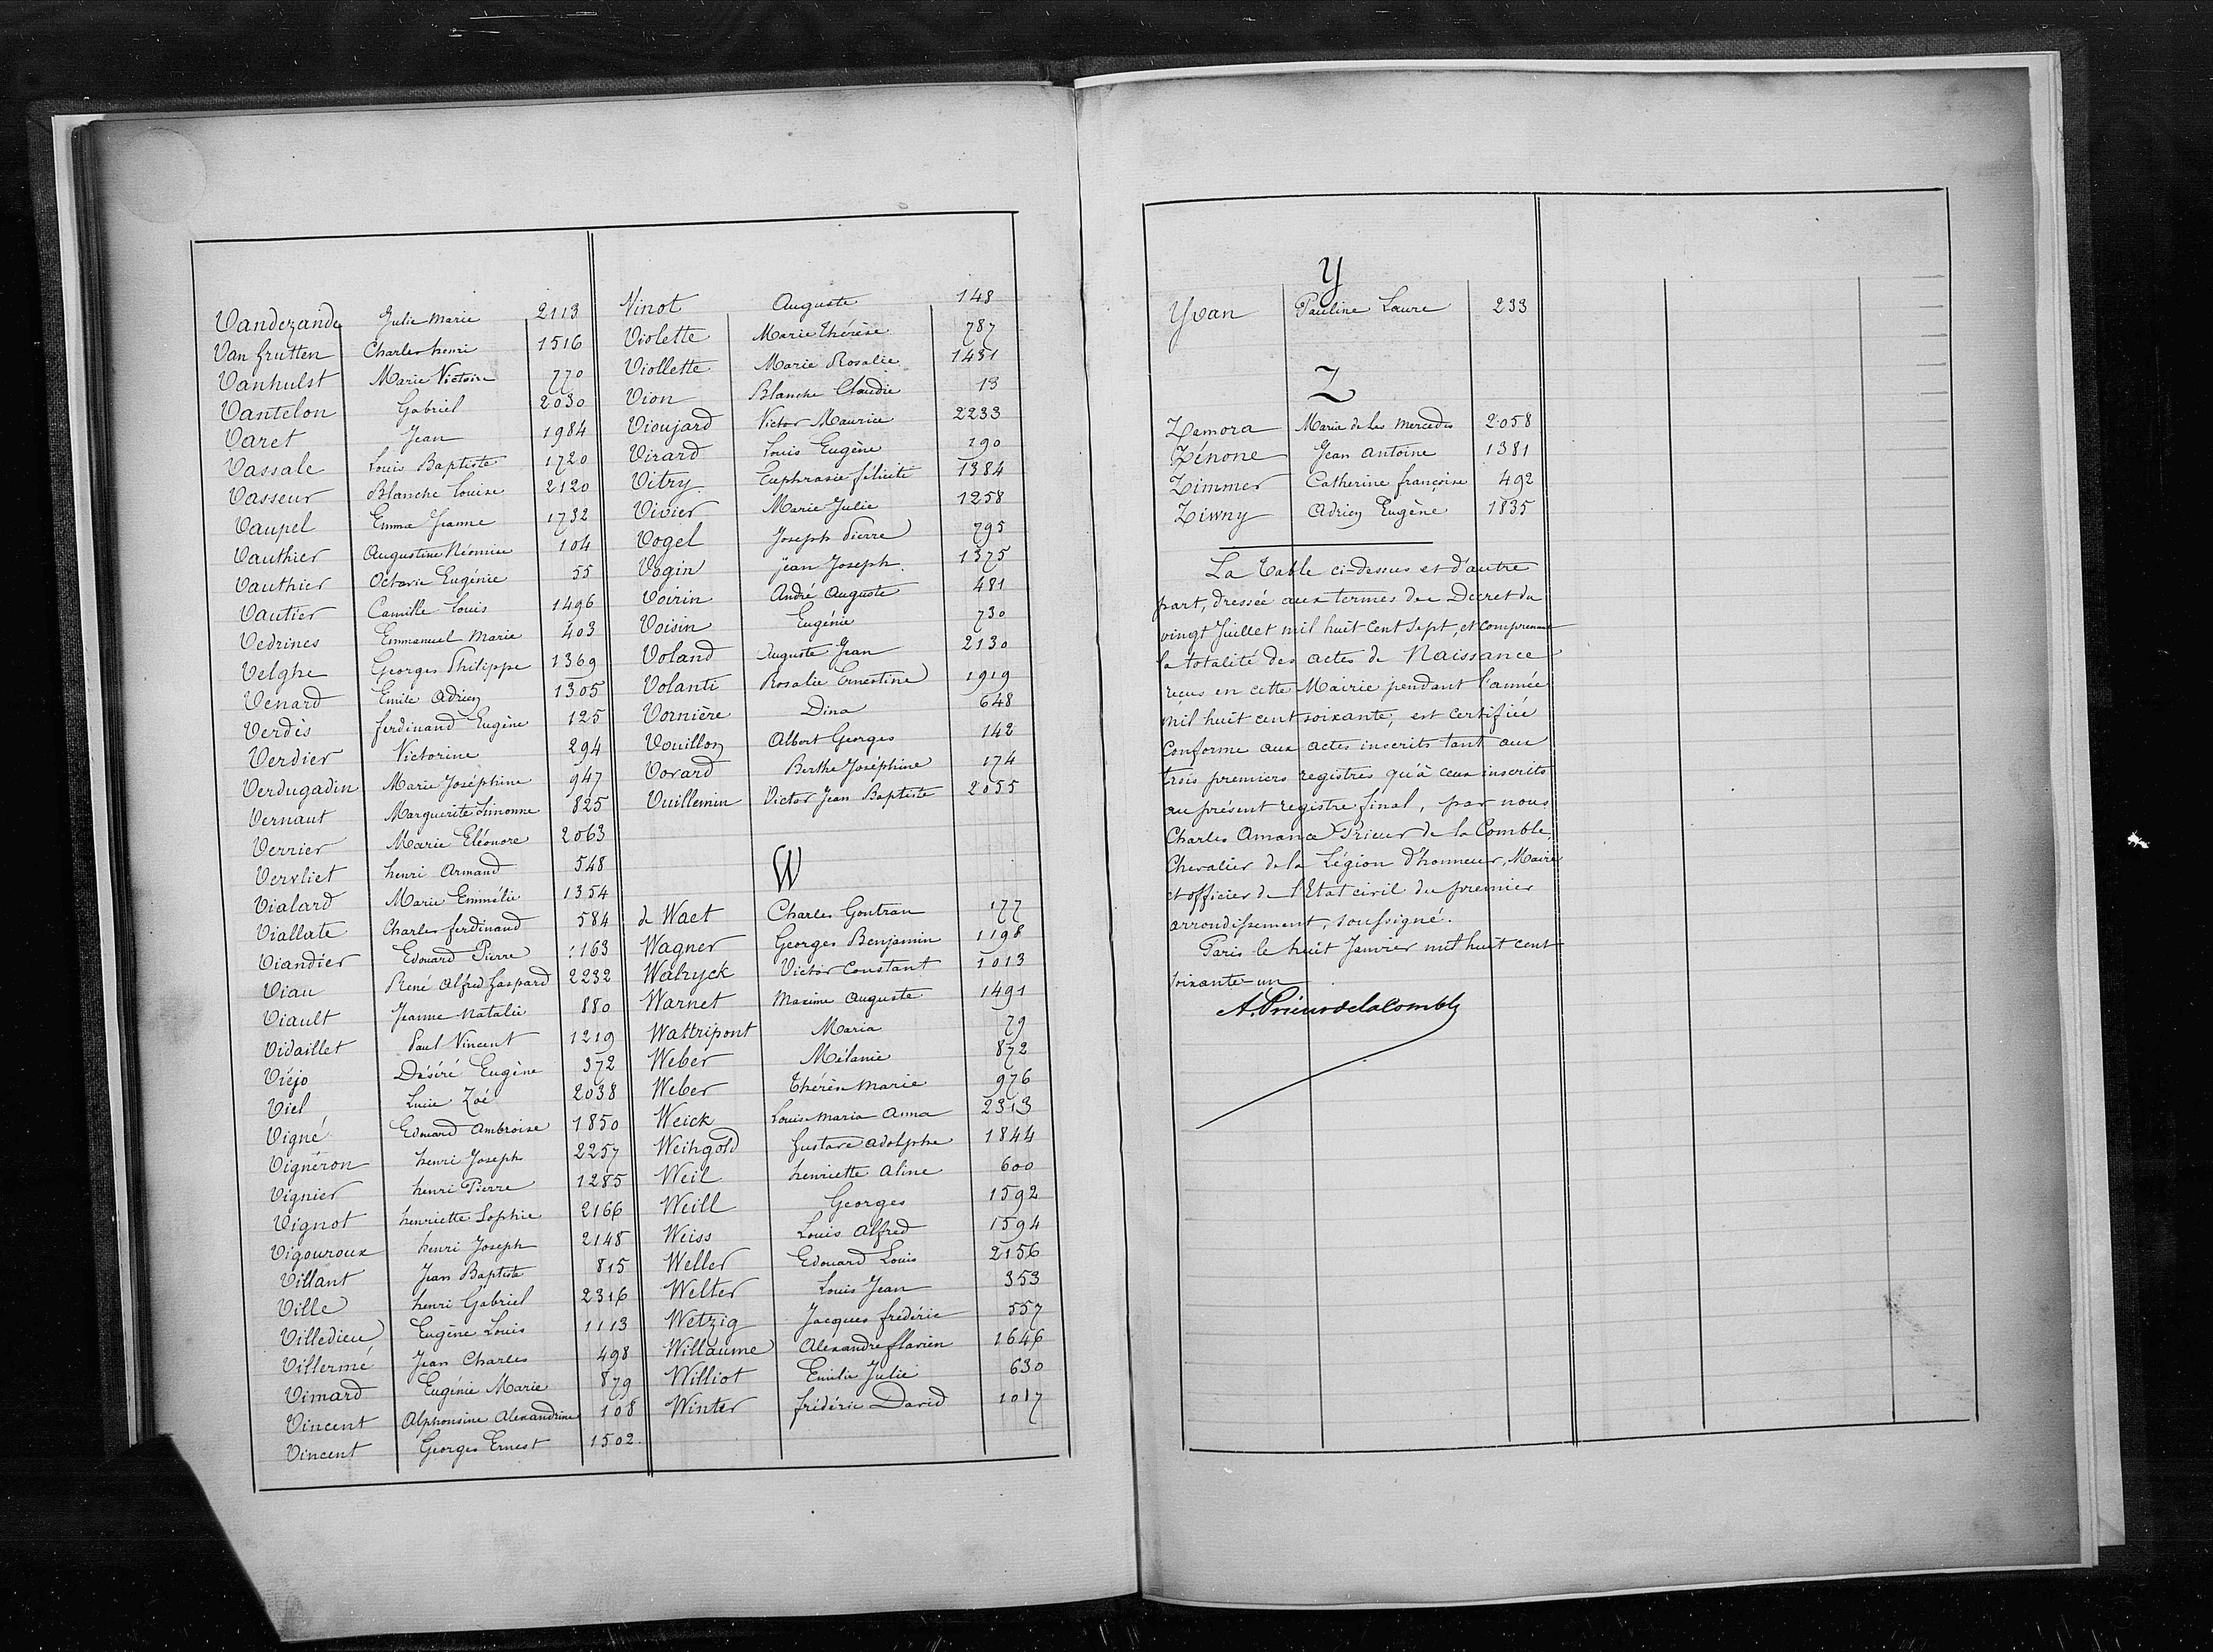 Vandezande Julie Marie 2113
Van Grutten Charles henri 1516
Vanhulst Marie Victoire 770
Vantelon Gabriel 2030
Varet Jean 1984
Vassale Louis Baptiste 1720
Vasseur Blanche Louise 2120
Vaupel Emma Jeanne 1732
Vauthier Augustine Néomie 104
Vauthier Octavie Eugénie 55
Vautier Camille Louis 1496
Vedrines Emmanuel Marie 403
Velghe Georges Philippe 1369
Venard Emile Adrien 1305
Verdès ferdinand Eugène 125
Verdier Victorine 294
Verdugadin Marie Joséphine 947
Vernaut Marguerite Simonne 825
Verrier Marie Eléonore 2063
Vervliet henri Armand 548
Vialard Marie Emmélie 1354
Viallate Charles ferdinand 584
Viandier Edouard Pierre 1163
Viau René Alfred Gaspard 2232
Viault Jeanne Natalie 880
Vidaillet Paul Vincent 1219
Viéjo Désiré Eugène 372
Viel Lucie Zoé 2038
Vigné Edouard Ambroise 1850
Vignéron henri Joseph 2257
Vignier henri Pierre 1285
Vignot henriette Sophie 2166
Vigouroux henri Joseph 2148
Villant Jean Baptiste 815
Ville henri Gabriel 2316
Villedieu Eugène Louis 1113
Villermé Jean Charles 498
Vimard Eugénie Marie 879
Vincent Alphonsine Alexandrine 108
Vincent Georges Ernest 1502
Vinot Auguste 148
Violette Marie Thérèse 787
Viollette Marie Rosalie 1431
Vion Blanche Claudie 13
Vioujard Victor Maurice 2233
Virard Louis Eugène 190
Vitry Euphrasie félicité 1384
Vivier Marie Julie 1258
Vogel Joseph Pierre 795
Vogin jean Joseph 1375
Voirin André Auguste 481
Voisin Eugénie 730
Voland Auguste Jean 2130
Volanti Rosalie Ernestine 1919
Vornière Dina 648
Vouillon Albert Georges 142
Vorard Berthe Joséphine 174
Vuillemin Victor Jean Baptiste 2055
W
de Waet Charles Gontran 177
Wagner Georges Benjamin 1198
Walryck Victor Constant 1013
Warnet Maxime Auguste 1491
Wattripont Maria 79
Weber Mélanie 872
Weber Thérèse Marie 976
Weick Louis Maria Anna 2313
Weihgold Gustave Adolphe 1844
Weil henriette Aline 600
Weill Georges 1592
Weiss Louis Alfred 1594
Weller Edouard Louis 2156
Welter Louis Jean 353
Wetzig Jacques frédéric 557
Willaume Alexandre flavien 1646
Williot Emilie Julie 630
Winter frédéric David 1017
Y
Yvan Pauline Laure 233
Z
Zamora Maria de las Mercedes 2058
Zénone Jean Antoine 1381
Zimmer Catherine françoise 492
Ziwny Adrien Eugène 1835
La Table ci-dessus et d'autre
part, dressée aux termes du Décret du
vingt Juillet mil huit cent sept, et comprenant
la totalité des actes de Naissance
reçus en cette Mairie pendant l'année
mil huit cent soixante, est certifiée
Conforme aux actes inscrits tant aux
trois premiers registres qu'à ceux inscrits
au présent registre final, par nous
Charles Amance Prieur de la Comble,
Chevalier de la Légion d'honneur, Maire
et officier de l'Etat civil du premier
arrondissement, soussigné.
Paris le huit Janvier mil huit cent
soixante-un
A. Prieur de la Comble